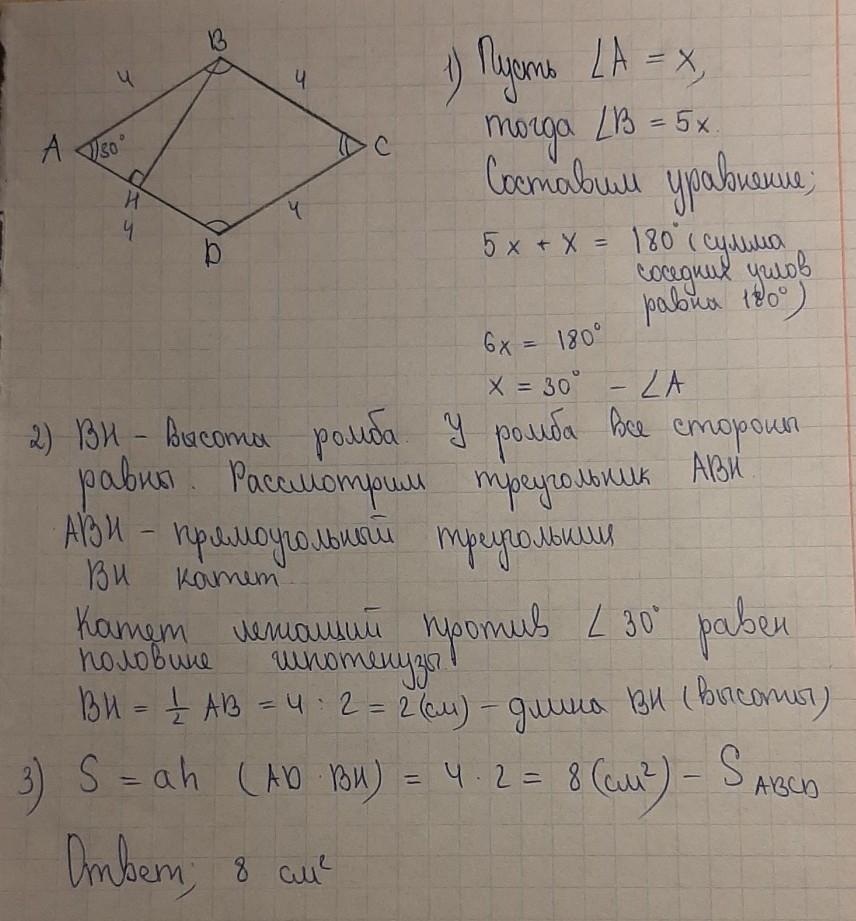 B
4
4
A
30°
C
H
4
4
D
1) Пусть ∠A = x,
тогда ∠B = 5x.
Составим уравнение;
5x + x = 180° (сумма
соседних углов
равна 180°)
6x = 180°
x = 30° – ∠A
2) BH – высота ромба. У ромба все стороны
равны. Рассмотрим треугольник ABH.
ABH – прямоугольный треугольник
BH катет
Катет лежащий против ∠ 30° равен
половине гипотенузы
BH = 1/2 AB = 4 : 2 = 2 (см) – длина BH (высоты)
3) S = ah (AD · BH) = 4 · 2 = 8 (см²) – S ABCD
Ответ; 8 см²